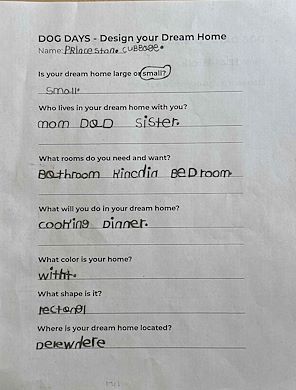 DOG DAYS - Design your Dream Home
Name: PRinceston. cuBBage.
Is your dream home large or small?
small.
Who lives in your dream home with you?
mom DaD sister.
What rooms do you need and want?
Bathroom Kincdin BeDroom.
What will you do in your dream home?
cooking Dinner.
What color is your home?
What shape is it?
rectangl
Where is your dream home located?